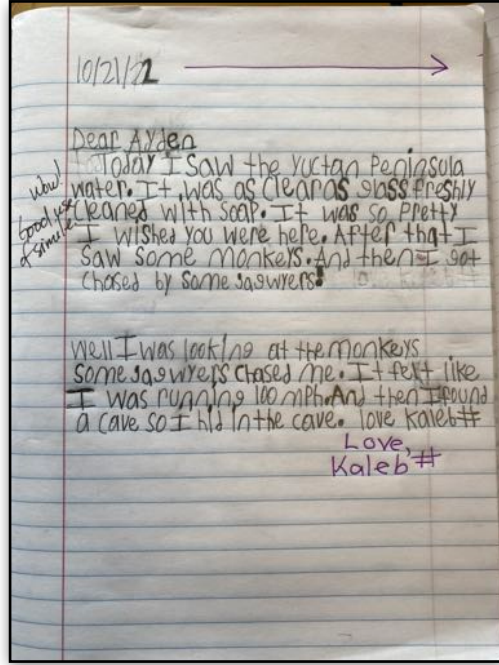 10/21/22
Dear Ayden
Today I saw the Yuctan Peninsula
water. It was as clear as glass freshly
cleaned with soap. It was so Pretty
I wished you were here. After that I
saw some monkeys. And then I got
chased by some jagwyers!
Wow!
Good use
of simile
Well I was looking at the monkeys
some jagwyers chased me. It felt like
I was running 100 mph. And then I found
a cave so I hid in the cave. love Kaleb #
Love,
Kaleb #